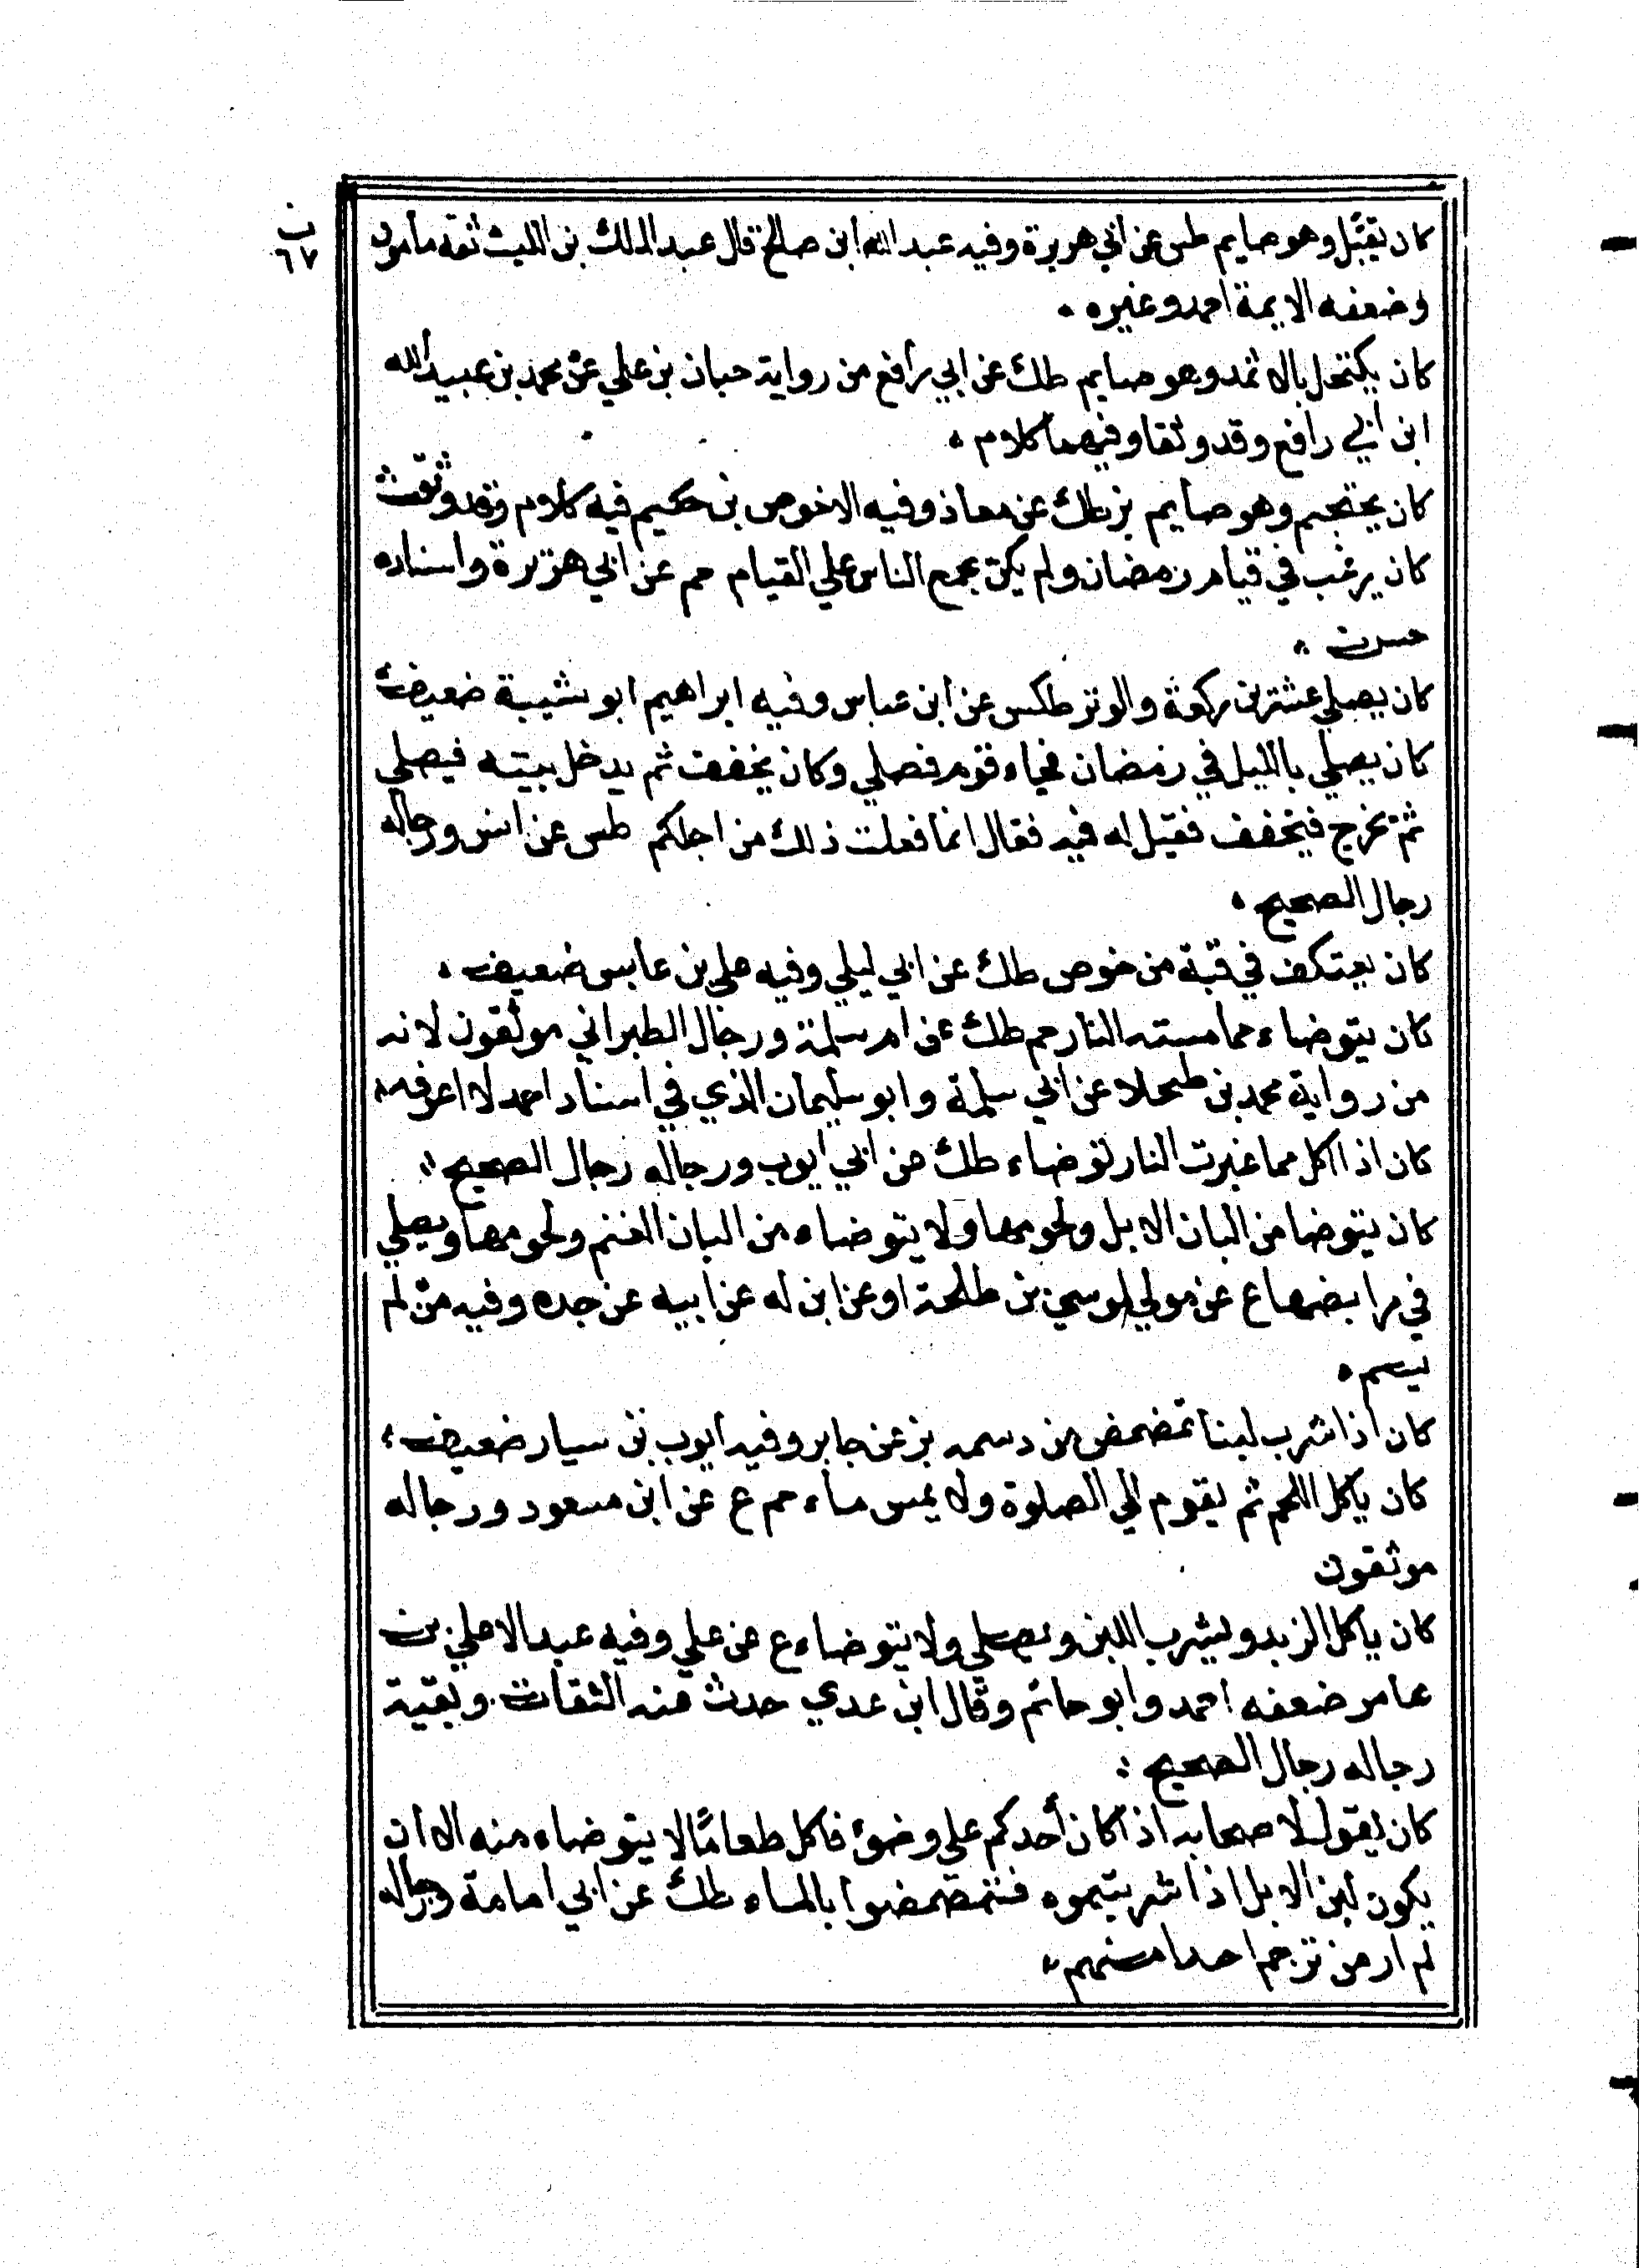 ب
٦٧
كان يقبّل وهو صايم طس عن ابي هريرة وفيه عبد الله ابن صالح قال عبد الملك بن الليث ثقه مأمون
وضعفه الايمة احمد وغيره ٠
كان يكتحل بالاثمد وهو صايم طك عن ابي رافع من رواية حبان بن علي عن محمد بن عبيد الله
ابن ابي رافع وقد وثقا وفيهما كلام ٠
كان يحتجم وهو صايم بز طك عن معاذ وفيه الاخوص بن حكيم فيه كلام وقد وثق
كان يرغب في قيام رمضان ولم يكن يجمع الناس علي القيام حم عن ابي هريرة واسناده
حسن ٠
كان يصلي عشرين ركعة والوتر طكس عن ابن عباس وفيه ابراهيم ابو شيبة ضعيف
كان يصلي بالليل في رمضان فجاء قوم فصلي وكان يخفف ثم يدخل بيته فيصلي
ثم يخرج فيخفف فقيل له فيه فقال انما فعلت ذلك من اجلكم طس عن انس ورجاله
رجال الصحيح ٠
كان يعتكف في قبة من خوص طك عن ابي ليلي وفيه علي بن عابس ضعيف ٠
كان يتوضاء مما مسته النار حم طك عن ام سلمة ورجال الطبراني موثقون لانه
من رواية محمد بن طحلا عن ابي سلمة وابو سليمان الذي في اسناد احمد لا اعرفه
كان اذا اكل مما غيرت النار توضاء طك عن ابي ايوب ورجاله رجال الصحيح
كان يتوضا من البان الابل ولحومها ولا يتوضاء من البان الغنم ولحومها ويصلي
في مرابضها ع عن مولي لموسي بن طلحة او عن ابن له عن ابيه عن جده وفيه من لم
يسم ٠
كان اذا شرب لبنا تمضمض من دسمه بز عن جابر وفيه ايوب بن سيار ضعيف
كان ياكل اللحم ثم يقوم الي الصلوة ولا يمس ماء حم ع عن ابن مسعود ورجاله
موثقون
كان ياكل الزبد ويشرب اللبن ويصلي ولا يتوضاء ع عن علي وفيه عبد الاعلي بن
عامر ضعفه احمد وابو حاتم وقال ابن عدي حدث عنه الثقات وبقية
رجاله رجال الصحيح
كان يقول لاصحابه اذا كان أحدكم علي وضوء فاكل طعامًا لا يتوضاء منه الا ان
يكون لبن الابل اذا شربتموه فتمضمضوا بالماء طك عن ابي امامة ورجاله
لم ار من ترجم احدا منهم